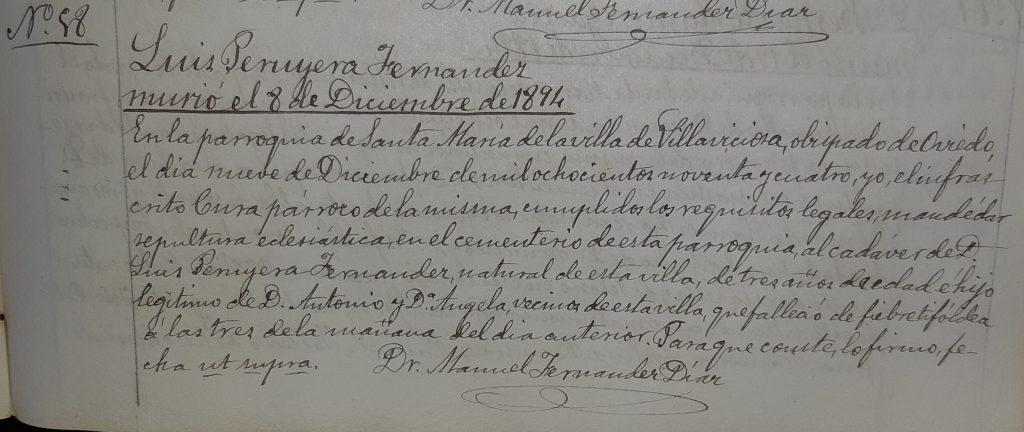 Dr. Manuel Fernandez Diaz
Nº. 58
Luis Peruyera Fernandez
murió el 8 de Diciembre de 1894
En la parroquia de Santa María de la villa de Villaviciosa, obispado de Oviedo,
el dia nueve de Diciembre de mil ochocientos noventa y cuatro, yo, el infras-
crito Cura párroco de la misma, cumplidos los requisitos legales, mandé dar
sepultura eclesiástica, en el cementerio de esta parroquia, al cadáver de D.
Luis Peruyera Fernandez, natural de esta villa, de tres años de edad é hijo
legítimo de D. Antonio y Dª Angela, vecinos de esta villa, que falleció de fiebre tifoidea
á las tres de la mañana del dia anterior. Para que conste, lo firmo, fe-
cha ut supra. Dr. Manuel Fernandez Diaz